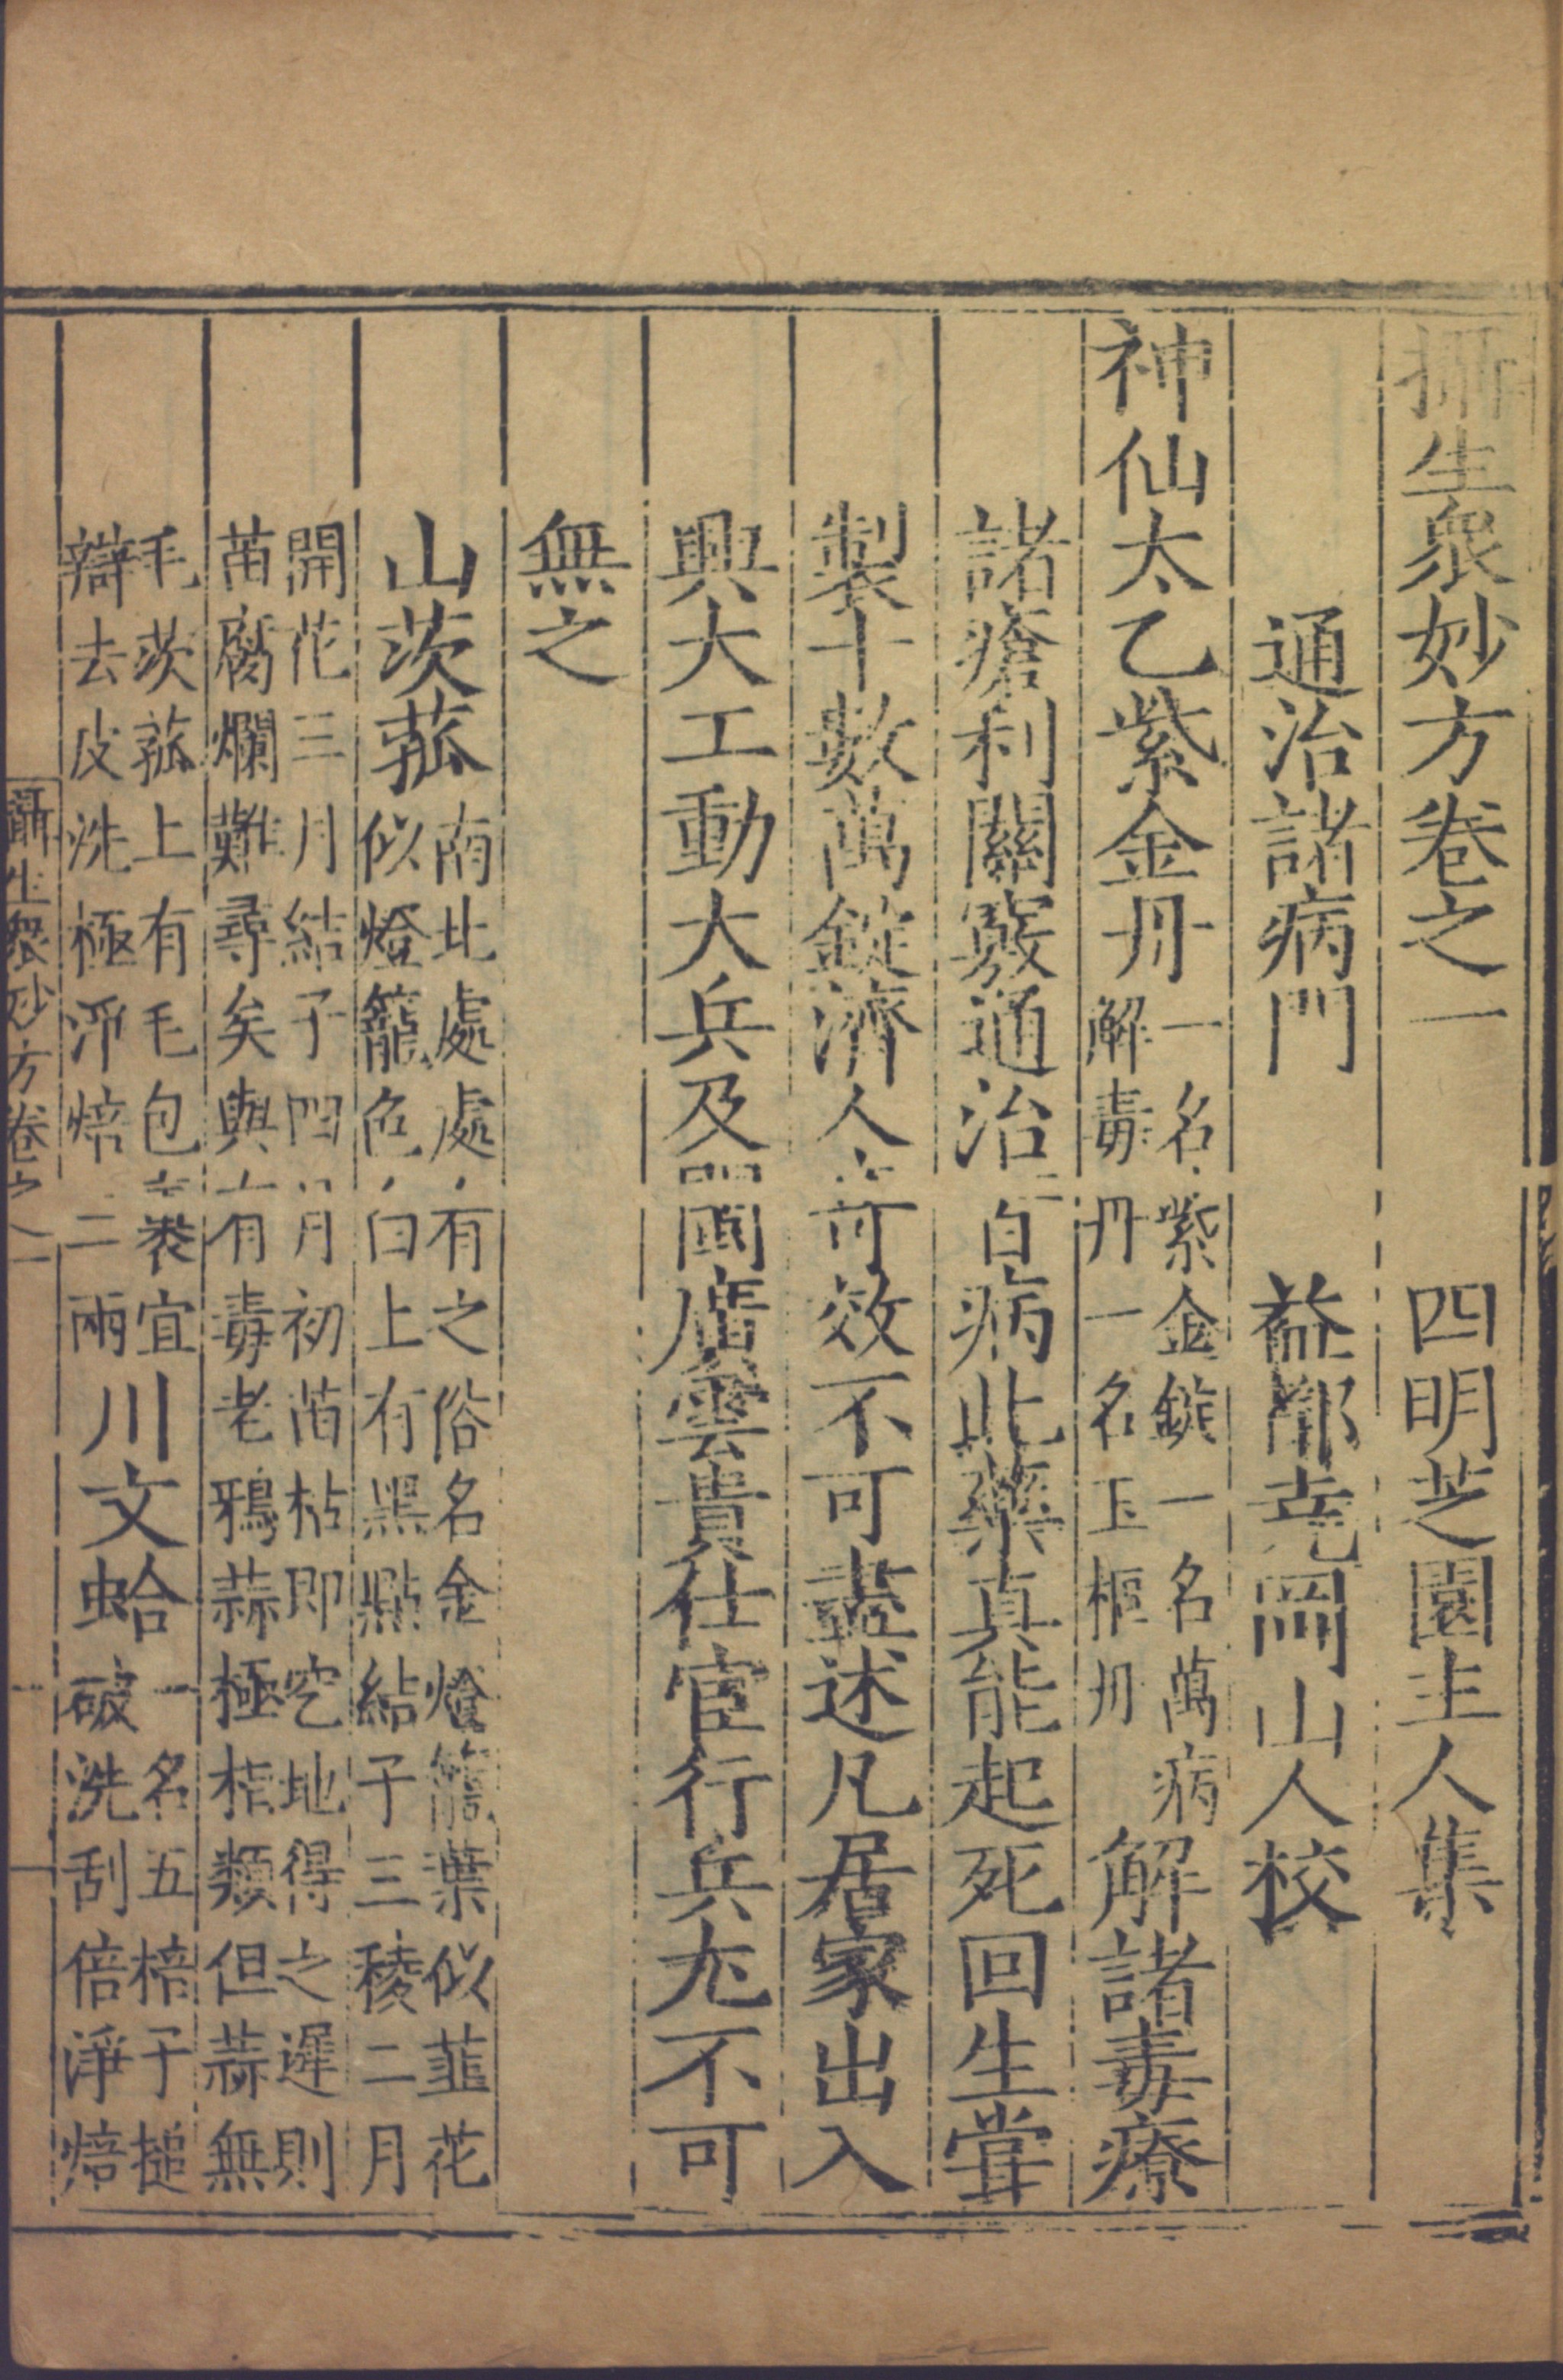 攝生衆妙方卷之一　四明芝園主人集
通治諸病門　益都堯岡山人校
神仙太乙紫金丹一名紫金錠一名萬病解毒丹一名玉樞丹解諸毒療
諸瘡利關竅通治百病此藥真能起死回生嘗
製十數萬錠濟人奇效不可盡述凡居家出入
興大工動大兵及閩廣雲貴仕宦行兵尤不可
無之
山茨菰南北處處有之俗名金燈籠葉似韮花似燈籠色白上有黑點結子三稜二月
開花三月結子四月初苗枯即穵地得之遲則苗腐爛難尋矣與有毒老鴉蒜極相類但蒜無
毛茨菰上有毛包裹宜辯去皮洗極淨焙二兩川文蛤一名五棓子搥破洗刮倍淨焙
攝生衆妙方卷之一　一